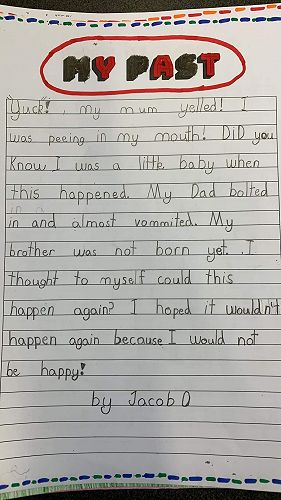 MY PAST
"Yuck!", my mum yelled! I
was peeing in my mouth! DiD you
Know, I was a little baby when
this happened. My Dad bolted
in and almost vommited. My
brother was not born yet. I
thought to myself could this
happen again? I hoped it wouldn't
happen again because I would not
be happy!
by Jacob O